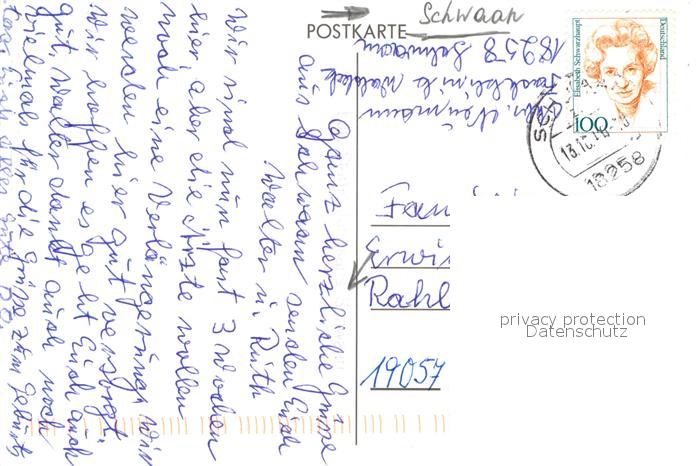 Schwaan
POSTKARTE
Elisabeth Schwarzhaupt
Deutschland
100
18258
Neumann
18258 Schwaan
Ganz herzliche Grüße
aus Schwaan senden Euch
Walter u. Ruth
Wir sind nun fast 3 Wochen
hier, aber die Ärzte wollen
noch eine Verlängerung. Wir
werden hier gut versorgt.
Wir hoffen es geht Euch auch
gut. Walter dankt auch noch
vielmals für die Grüße zum Geburts
Fam
Erwi
Rahl
19057
privacy protection
Datenschutz